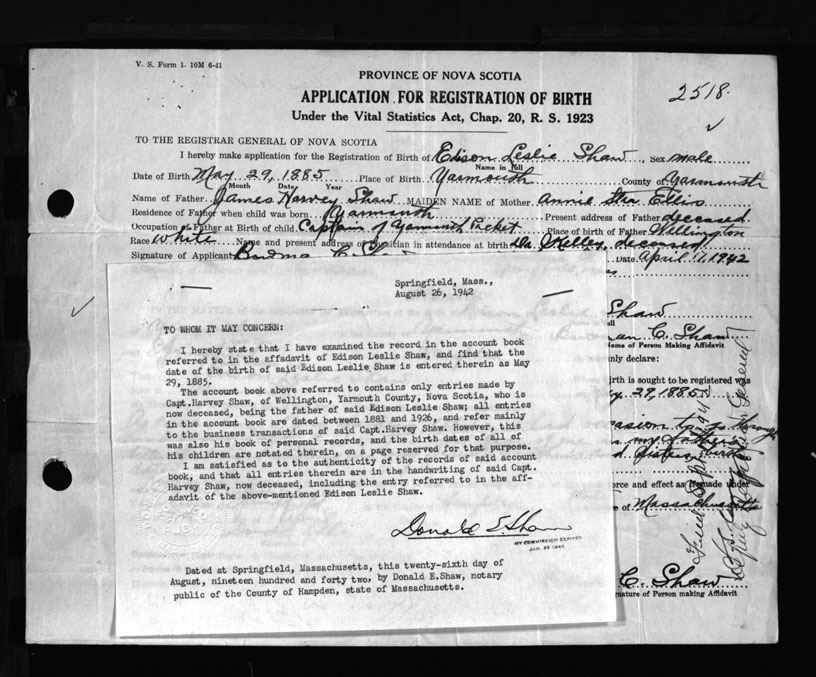 V. S. Form 1. 10M 6-41
PROVINCE OF NOVA SCOTIA
APPLICATION FOR REGISTRATION OF BIRTH
2518.
Under the Vital Statistics Act, Chap. 20, R. S. 1923
TO THE REGISTRAR GENERAL OF NOVA SCOTIA
I hereby make application for the Registration of Birth of Edison Leslie Shaw, Sex male
Name in full
Date of Birth May 29, 1885 Place of Birth Yarmouth County of Yarmouth
Month Date Year
Name of Father James Harvey Shaw MAIDEN NAME of Mother Annie Ellis
Residence of Father when child was born Yarmouth Present address of Father deceased
Occupation of Father at Birth of child Captain of Yarmouth Packet Place of birth of Father Wellington
Race White Name and present address of physician in attendance at birth Dr. Kelley, deceased
Signature of Applicant C. Date April 1942
Springfield, Mass.,
August 26, 1942
TO WHOM IT MAY CONCERN:
I hereby state that I have examined the record in the account book
referred to in the affadavit of Edison Leslie Shaw, and find that the
date of the birth of said Edison Leslie Shaw is entered therein as May
29, 1885.
The account book above referred to contains only entries made by
Capt.Harvey Shaw, of Wellington, Yarmouth County, Nova Scotia, who is
now deceased, being the father of said Edison Leslie Shaw; all entries
in the account book are dated between 1881 and 1926, and refer mainly
to the business transactions of said Capt.Harvey Shaw. However, this
was also his book of personal records, and the birth dates of all of
his children are notated therein, on a page reserved for that purpose.
I am satisfied as to the authenticity of the records of said account
book, and that all entries therein are in the handwriting of said Capt.
Harvey Shaw, now deceased, including the entry referred to in the aff-
adavit of the above-mentioned Edison Leslie Shaw.
Donald E. Shaw
MY COMMISSION EXPIRES
Dated at Springfield, Massachusetts, this twenty-sixth day of
August, nineteen hundred and forty two, by Donald E.Shaw, notary
public of the County of Hampden, state of Massachusetts.
Shaw
C. Shaw
Name of Person Making Affidavit
nly declare:
irth is sought to be registered was
29, 1885
my father's
orce and effect as if made under
of Massachusetts
C. Shaw
gnature of Person making Affidavit